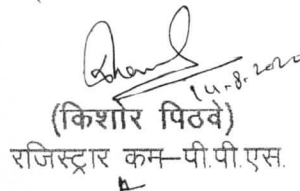 14.8.2020
(किशोर पिठवे)
रजिस्ट्रार कम–पी.पी.एस.